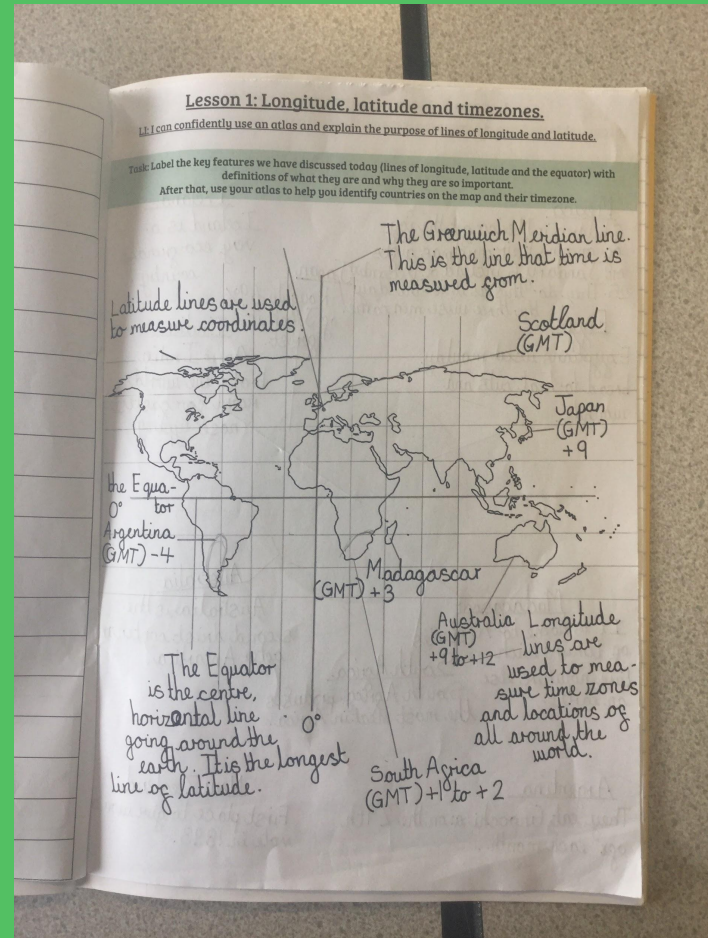 Lesson 1: Longitude, latitude and timezones.
LI: I can confidently use an atlas and explain the purpose of lines of longitude and latitude.
Task: Label the key features we have discussed today (lines of longitude, latitude and the equator) with
definitions of what they are and why they are so important.
After that, use your atlas to help you identify countries on the map and their timezone.
The Greenwich Meridian line.
This is the line that time is
measured from.
Latitude lines are used
to measure coordinates.
Scotland
(GMT)
Japan
(GMT)
+9
the Equa-
tor
0°
Argentina
(GMT) -4
Madagascar
(GMT) +3
Australia
(GMT)
+9 to +12
Longitude
lines are
used to mea-
sure time zones
and locations of
all around the
world.
The Equator
is the centre,
horizontal line
going around the
earth. It is the longest
line of latitude.
0°
South Africa
(GMT) +1 to +2